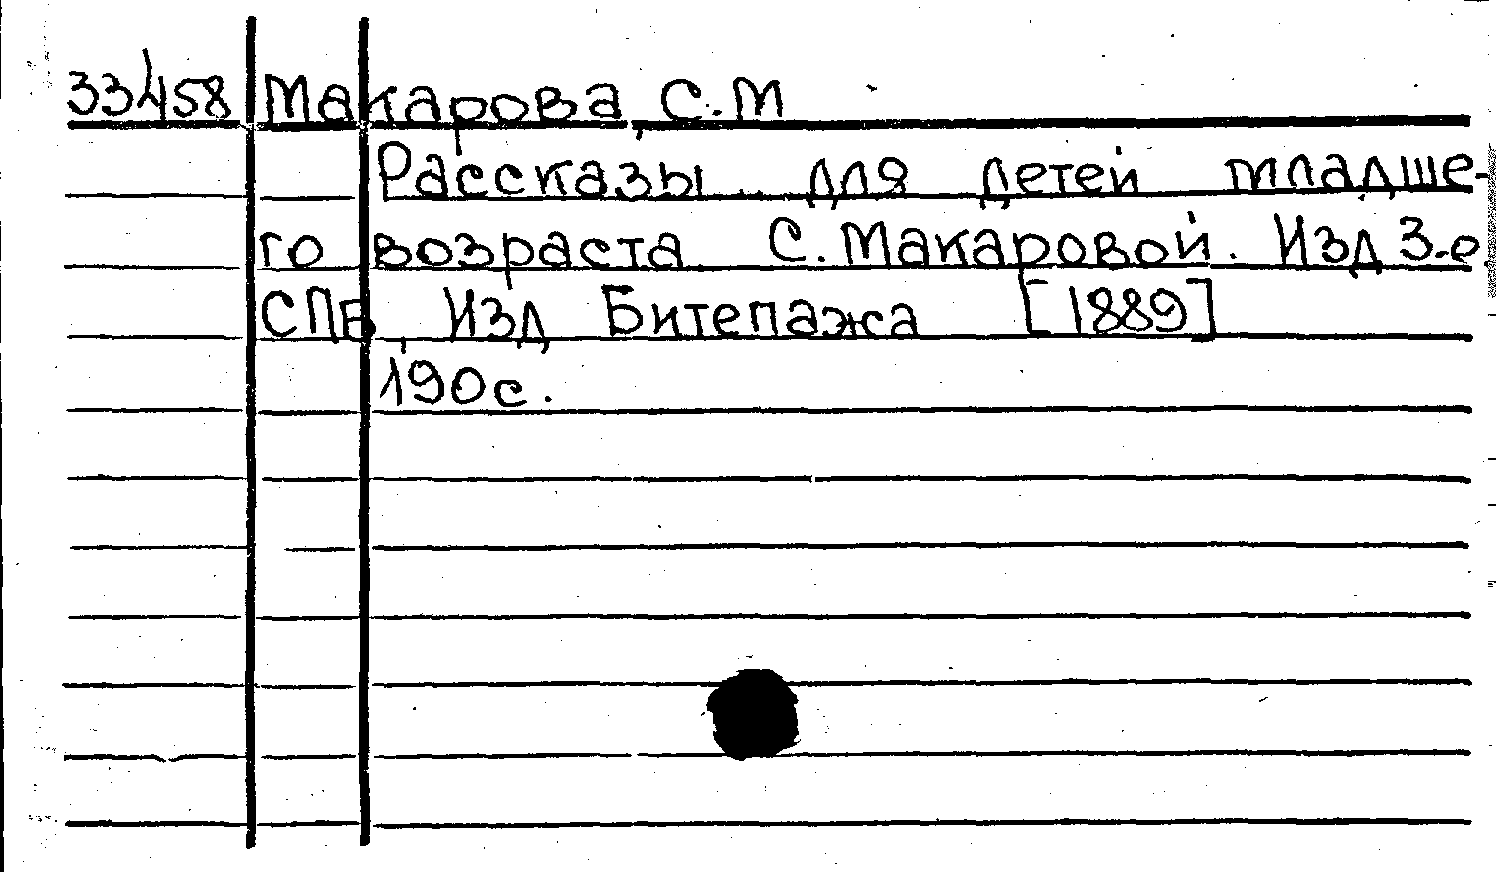 33458 Макарова, С.М
Рассказы для детей младше-
го возраста С. Макаровой. Изд 3-е.
СПБ, Изд Битепажа [1889]
190с.